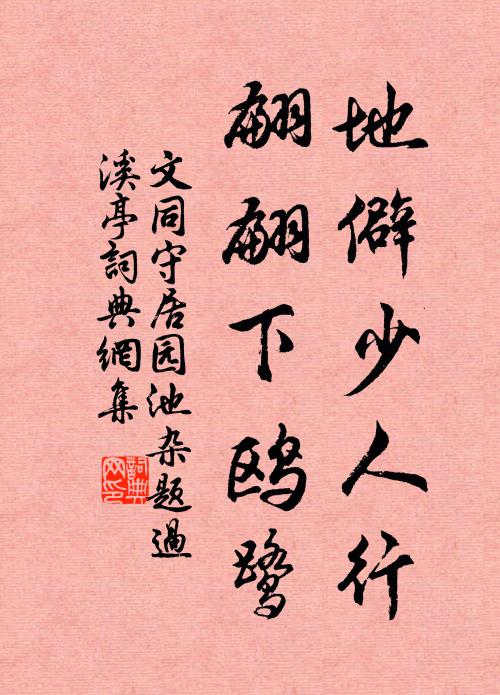 地僻少人行
翩翩下鸥鹭
文同守居园池杂题過
溪亭詞典網集
詞典网印